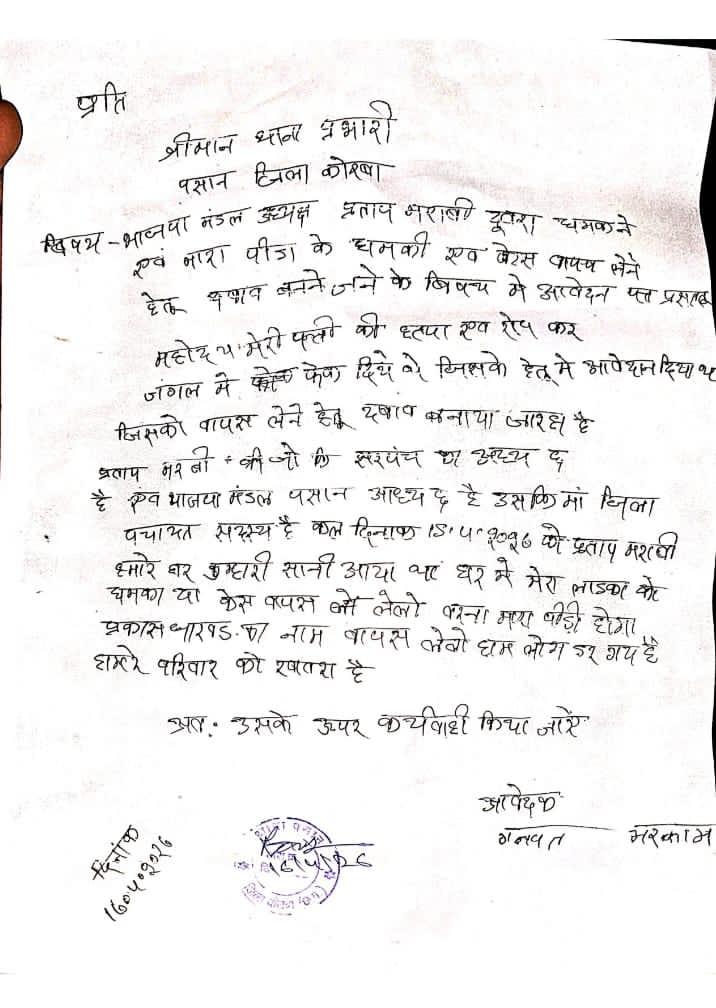 प्रति
श्रीमान थाना प्रभारी
पसान जिला कोरबा
विषय - भाजपा मंडल अध्यक्ष प्रताप मराबी द्वारा धमकने
एवं मारा पीडा के धमकी एवं केस वापस लेने
हेतू दबाव बनने जाने के बिषय मे आवेदन पत्र
महोदय मेरी पत्नी की हत्या एव रेप कर
जंगल मे फेक दिये थे जिसके हेतू मे आवेदान दिया था
जिसको वापस लेने हेतू दबाव बनाया जारहा है
प्रताप मराबी जो कि सरपंच
है एव भाजपा मंडल पसान आध्यद है उसकि मां जिला
पंचायत सदस्य है कल दिनाक 15.4.2026 को प्रताप मराबी
हमारे घर कुम्हारी सानी आया था घर मे मेरा लाडका को
धमका या केस वापस लेलो वरना मारा पीडी होगा
प्रकास का नाम वापस लेलो हाम लोग डर गये है
हामरे परिवार को खतरा है
अत: उसके ऊपर कार्यवाही किया जारें
आवेदक
गनपत मरकाम
दिनांक
16.4.2026
थाना पसान
16/4/26